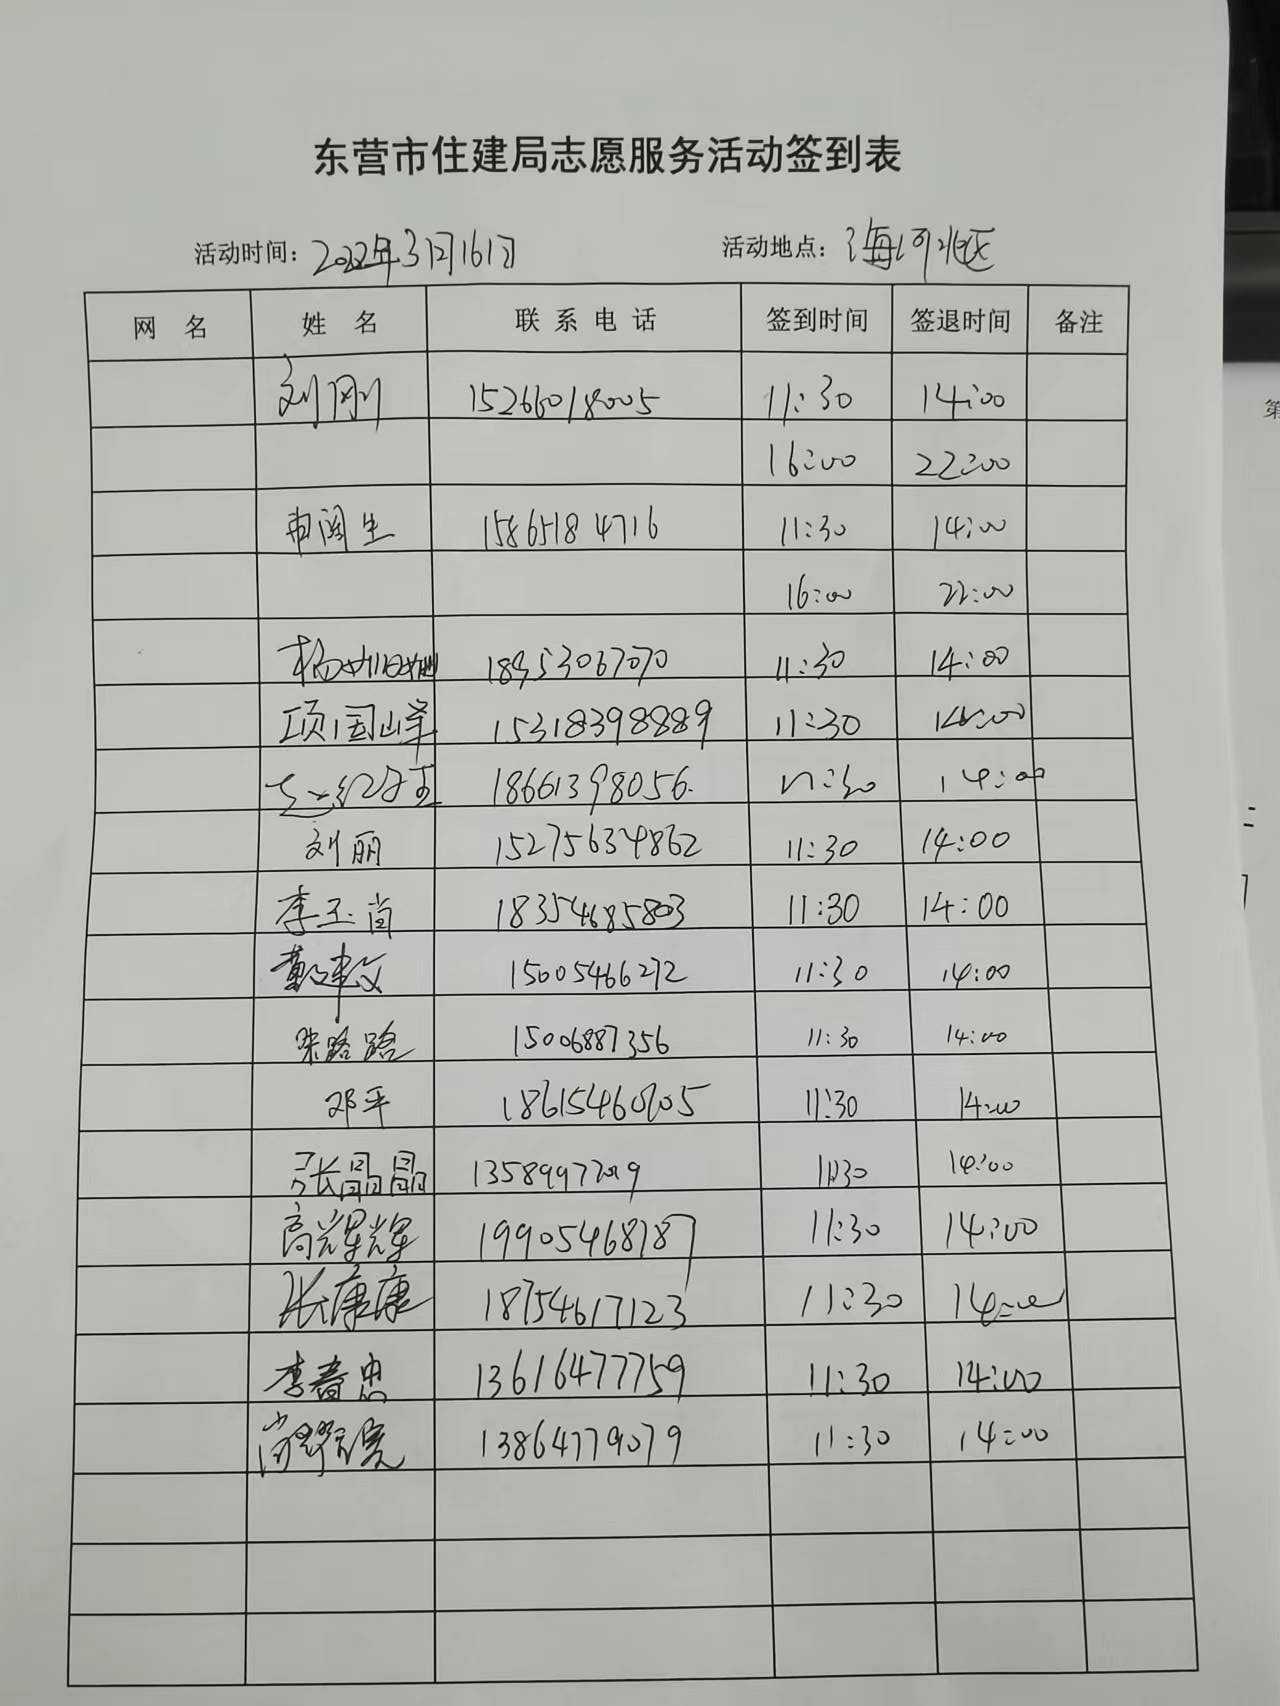 东营市住建局志愿服务活动签到表
活动时间：2022年3月16日 活动地点：海河小区
网 名 姓 名 联系电话 签到时间 签退时间 备注
刘刚 15266018005 11:30 14:00
16:00 22:00
15865184716 11:30 14:00
16:00 22:00
杨 18953067070 11:30 14:00
项国峰 15318398889 11:30 14:00
18661398056 11:30 14:00
刘丽 15275634862 11:30 14:00
李玉肖 18354685803 11:30 14:00
黄建文 15005466272 11:30 14:00
路路 15006887356 11:30 14:00
邓平 18615460705 11:30 14:00
张晶晶 13589977209 11:30 14:00
高辉辉 19905468787 11:30 14:00
张康康 18754617123 11:30 14:00
李春忠 13616477759 11:30 14:00
13864779079 11:30 14:00
第